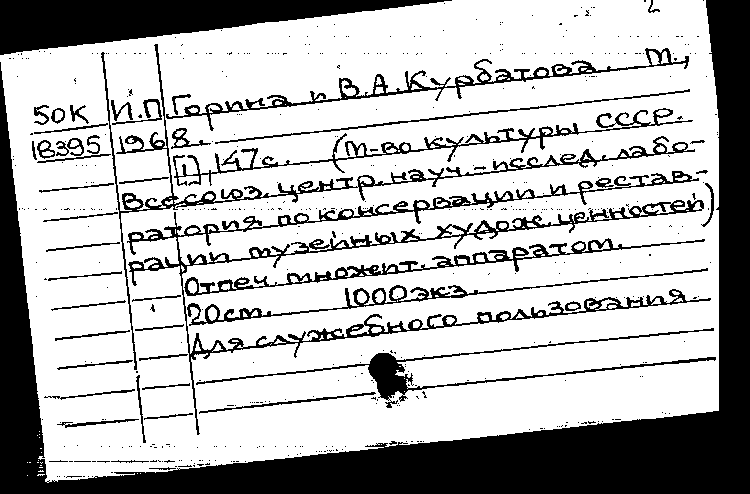 2
50К И.П.Горина и В.А.Курбатова. М.,
18395 1968.
[1], 147с. (М-во культуры СССР.
Всесоюз. центр. науч.-исслед. лабо-
ратория по консервации и рестав-
рации музейных худож. ценностей)
Отпеч. множит. аппаратом.
20см. 1000экз.
Для служебного пользования.